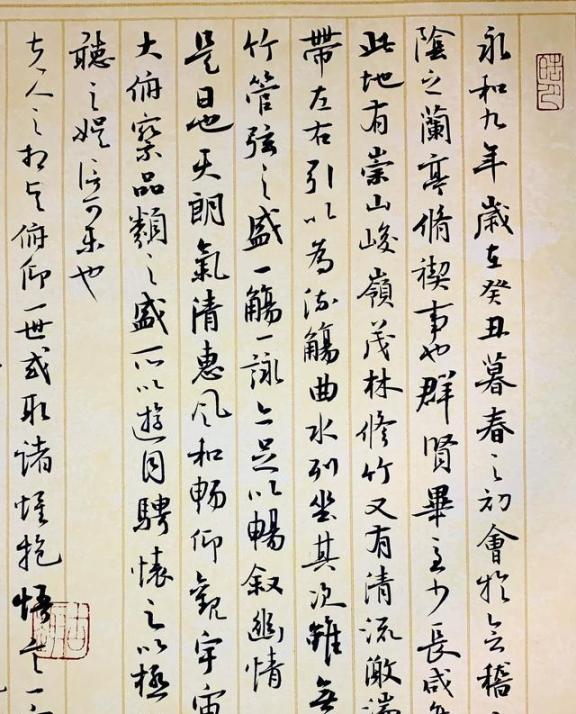 永和九年歲在癸丑暮春之初會於會稽
陰之蘭亭脩禊事也群賢畢至少長咸
此地有崇山峻嶺茂林修竹又有清流激湍
帶左右引以為流觴曲水列坐其次雖無
竹管弦之盛一觴一詠亦足以暢敘幽情
是日也天朗氣清惠風和畅仰觀宇宙
大俯察品類之盛所以遊目騁懷足以極
聽之娛信可樂也
夫人之相與俯仰一世或取諸懷抱悟言一